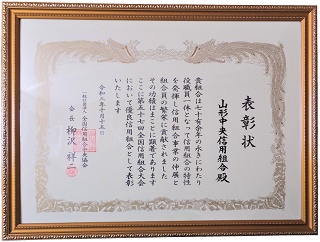 表彰状
山形中央信用組合殿
貴組合は七十有余年の永きにわたり
役職員一体となって信用組合の特性
を発揮し信用組合事業の伸展と
組合員の繁栄に貢献されました
その功績はまことに顕著であります
ここに第五十七回全国信用組合大会
において優良信用組合として表彰
いたします
令和 年十月十五日
一般社団法人 全国信用組合中央協会
会長 柳沢祥二